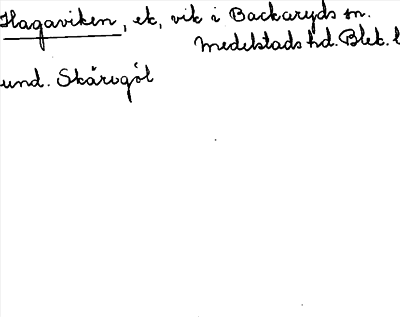 Hagaviken, ek, vik i Backaryds sn.
Medelstads hd. Blek. l
und. Skärvgöl